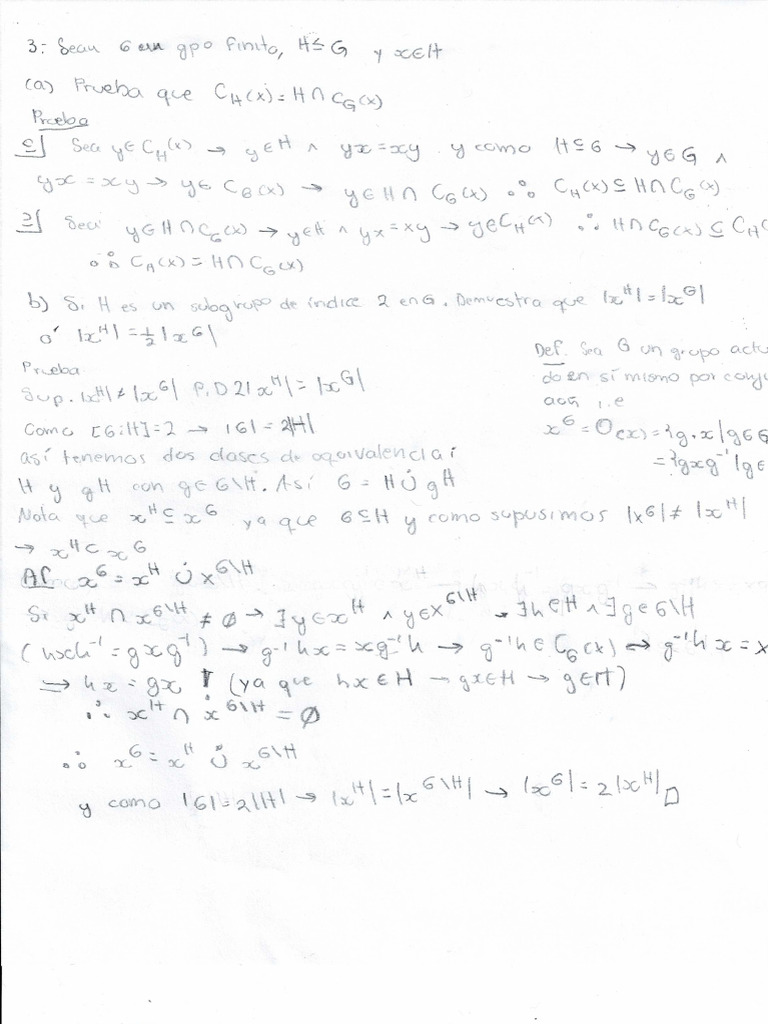 3: Sean G un gpo finito, H ≤ G y x∈H
(a) Prueba que C_H(x) = H ∩ C_G(x)
Prueba
⊆] Sea y∈C_H(x) → y∈H ∧ yx = xy y como H⊆G → y∈G ∧
yx = xy → y∈ C_G(x) → y∈H∩ C_G(x) ∴ C_H(x) ⊆ H∩C_G(x)
⊇] Sea y∈H∩C_G(x) → y∈H ∧ yx = xy → y∈C_H(x) ∴ H∩C_G(x) ⊆ C_H(
∴ C_H(x) = H∩C_G(x)
b) Si H es un subgrupo de índice 2 en G. Demuestra que |x^H| = |x^G|
o' |x^H| = ½|x^G|
Prueba
Sup. |x^H| ≠ |x^G| P.D 2|x^H| = |x^G|
Como [G:H]=2 → |G| = 2|H|
así tenemos dos clases de equivalencia:
H y gH con g∈G\H. Así G = H ∪̇ gH
Def. Sea G un grupo actu
do en sí mismo por conju
i.e
x^G = O(x) = {g·x | g∈G
= {gxg⁻¹ | g∈
Nota que x^H ⊆ x^G ya que G⊆H y como supusimos |x^G| ≠ |x^H|
→ x^H ⊂ x^G
Af. x^G = x^H ∪̇ x^G\H
Si x^H ∩ x^G\H ≠ ∅ → ∃y∈x^H ∧ y∈x^G\H → ∃h∈H ∧ ∃g∈G\H
(hxh⁻¹ = gxg⁻¹) → g⁻¹hx = xg⁻¹h → g⁻¹h∈C_G(x) ↔ g⁻¹hx = x
⟹ hx = gx ! (ya que hx∈H → gx∈H → g∈H)
∴ x^H ∩ x^G\H = ∅
∴ x^G = x^H ∪̇ x^G\H
y como |G| = 2|H| → |x^H| = |x^G\H| → |x^G| = 2|x^H| □